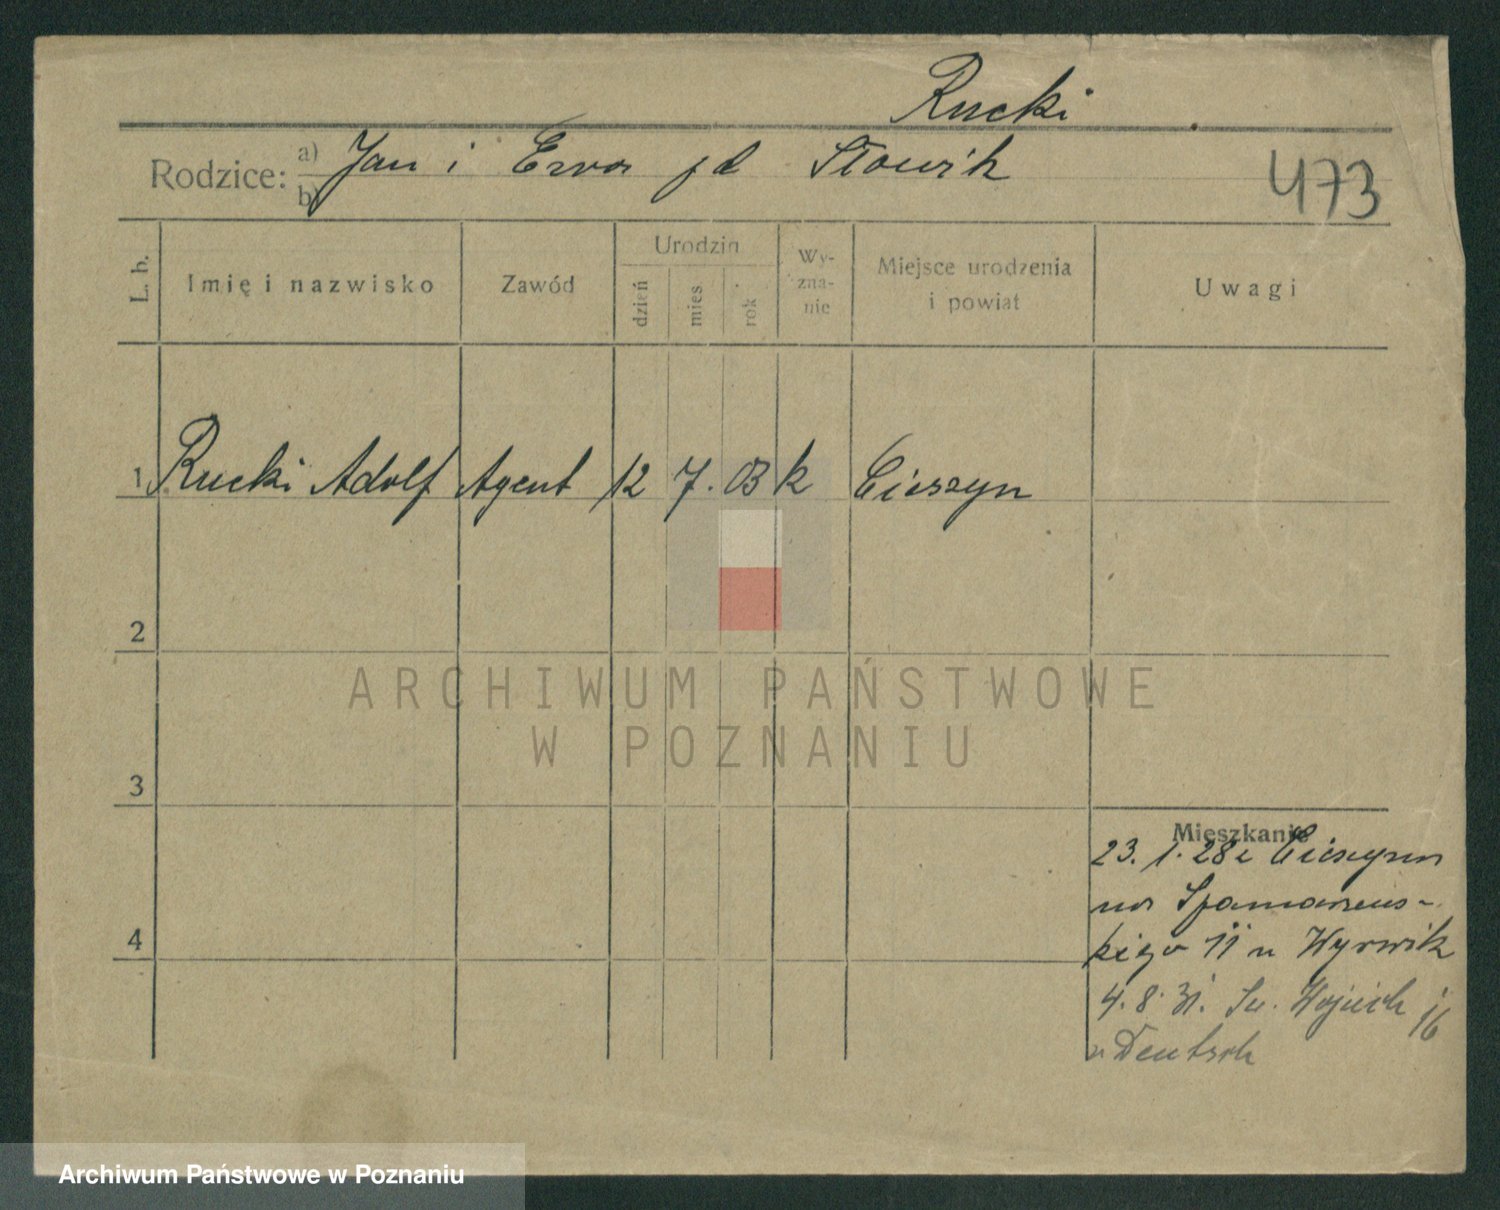 Rucki
Rodzice: a) Jan i Ewa zd Słowik
b)
473
L. b.
Imię i nazwisko
Zawód
Urodzin
dzień
mies
rok
Wy-
zna-
nie
Miejsce urodzenia
i powiat
Uwagi
1 Rucki Adolf Agent 12 7. 03 k Cieszyn
2
ARCHIWUM PAŃSTWOWE
W POZNANIU
3
Mieszkanie
23. 1. 28 z Cieszyna
na
kiego 11 u Wyrwik
4
4. 8. 31. Św. Wojciech 16
u Deutsch
Archiwum Państwowe w Poznaniu